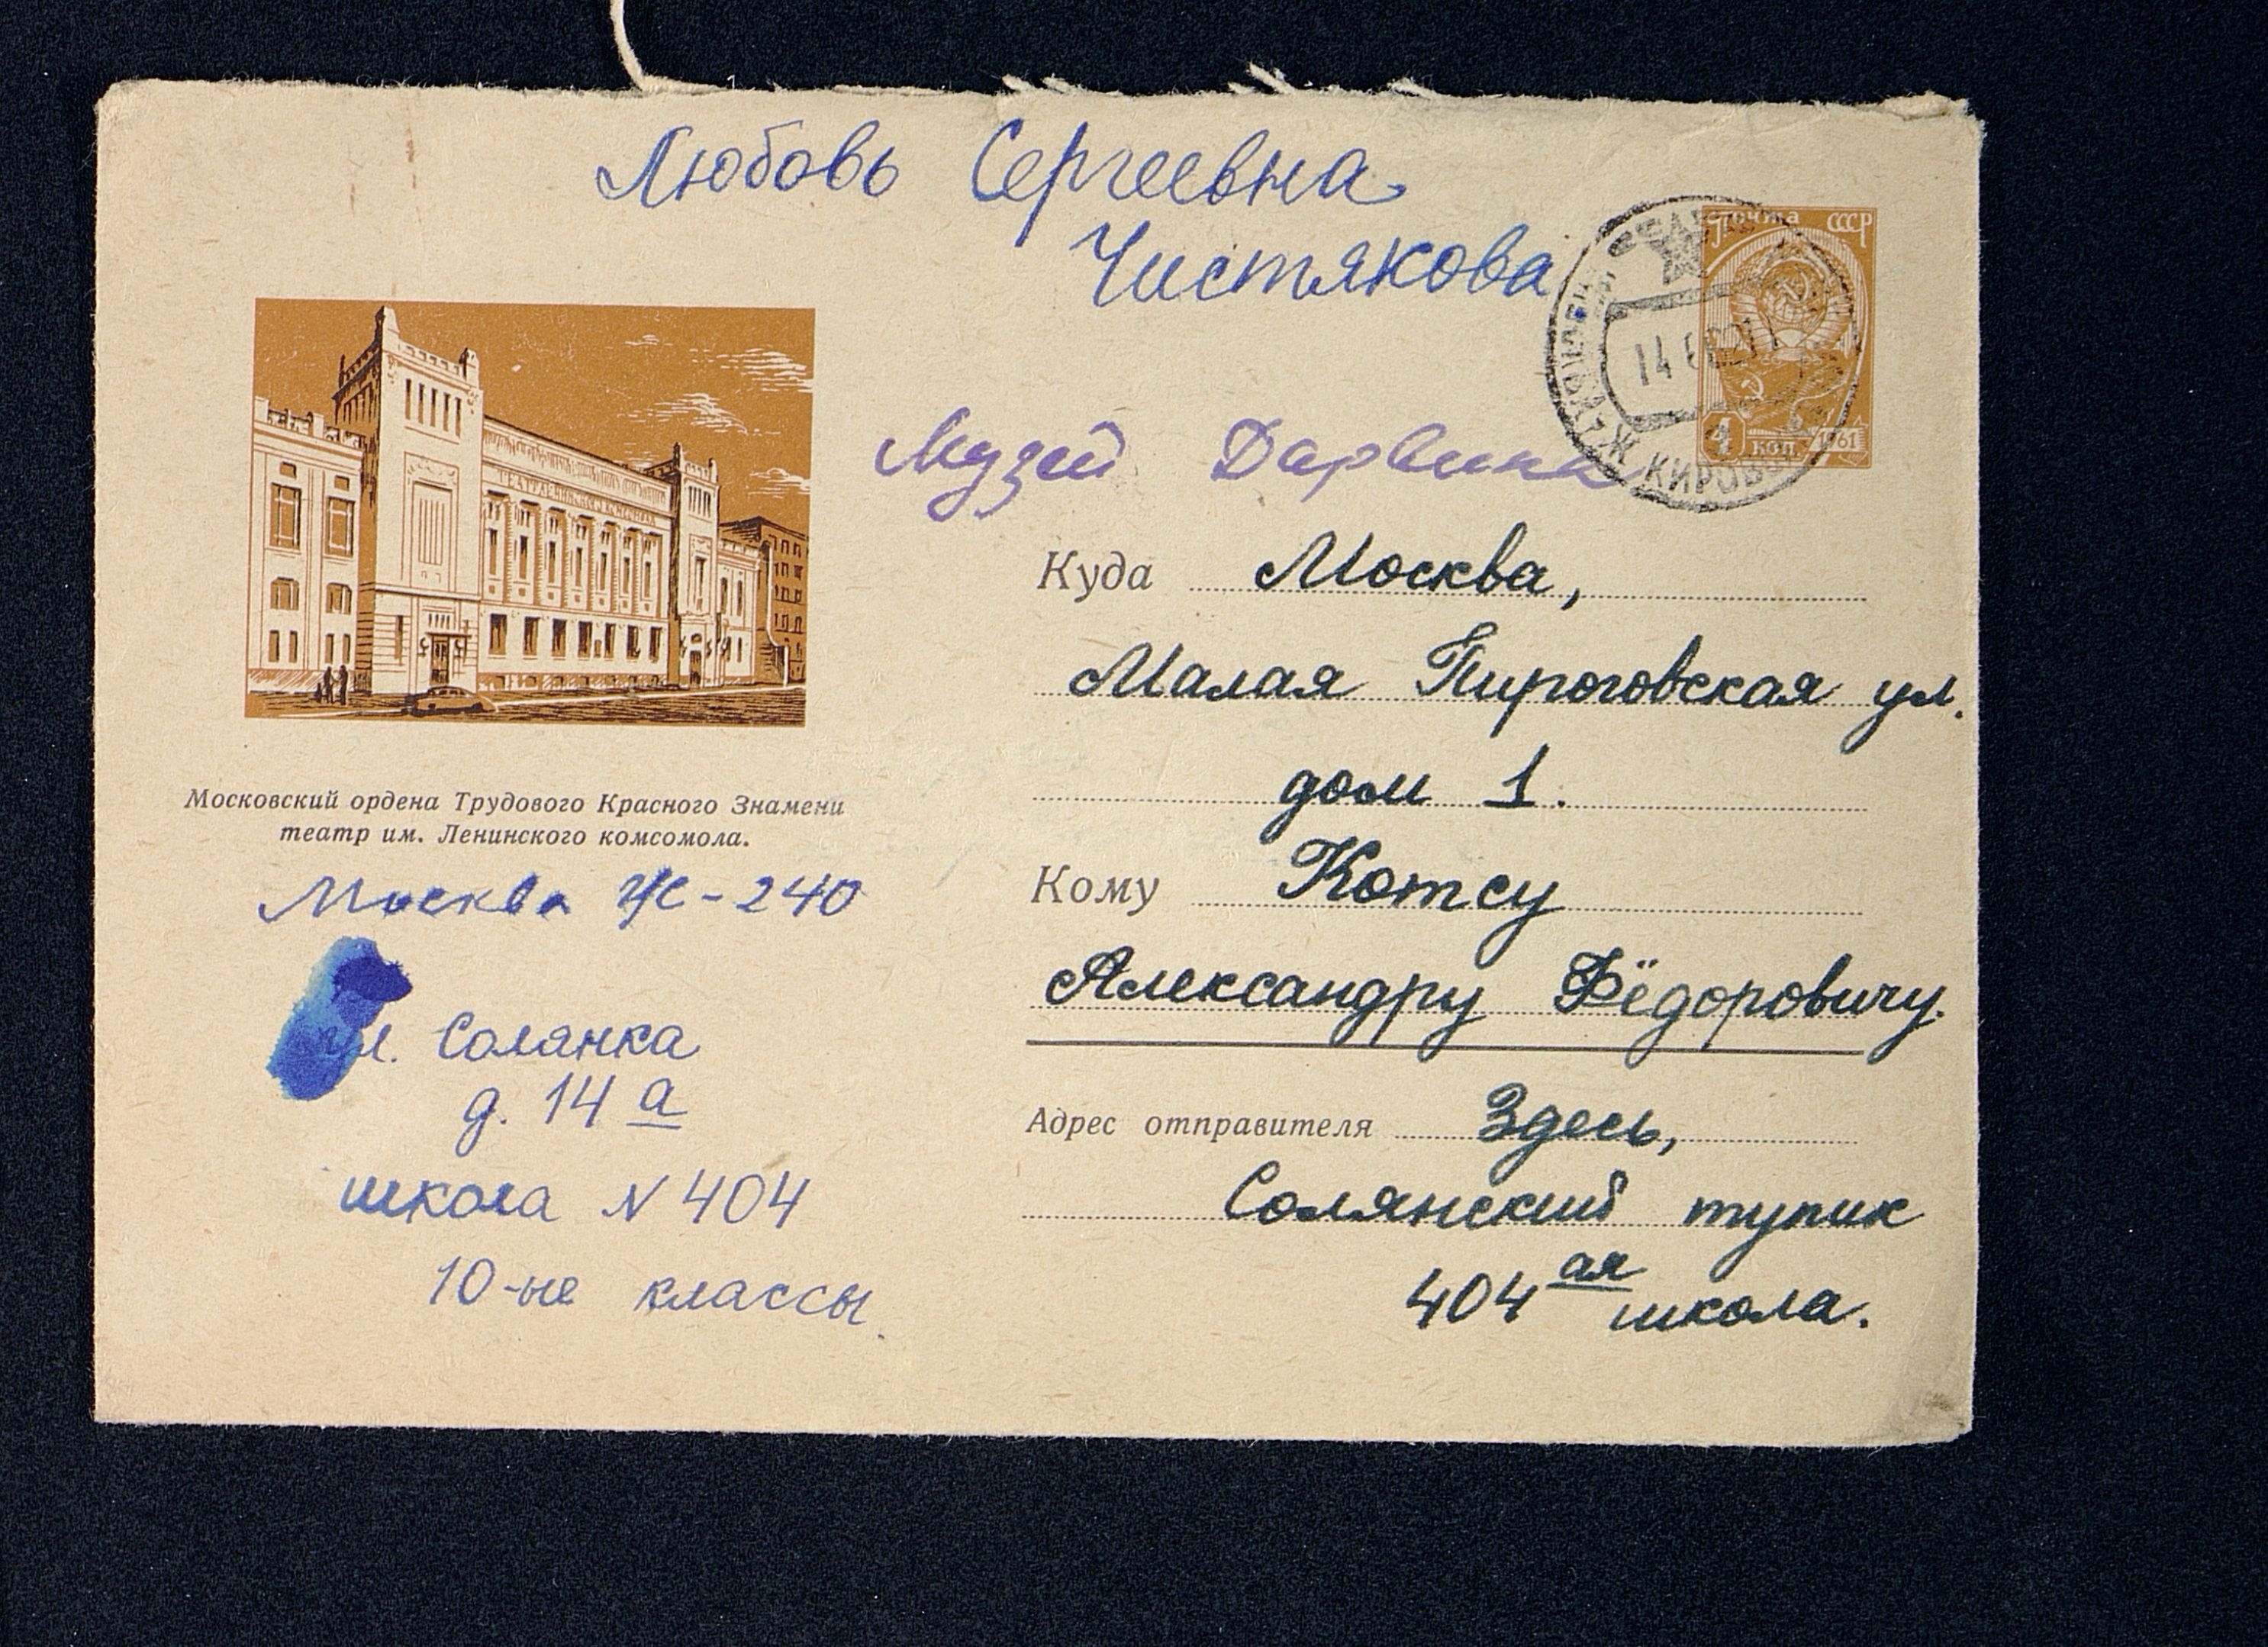 Любовь Сергеевна
Чистякова
почта СССР
4 коп. 1961
Музей Дарвина
Куда Москва,
Малая Пироговская ул.
дом 1.
Кому Котсу
Александру Фёдоровичу.
Адрес отправителя Здесь,
Солянский тупик
404ая школа.
Московский ордена Трудового Красного Знамени
театр им. Ленинского комсомола.
Москва Ж-240
ул. Солянка
д. 14 а
школа N 404
10-ые классы.